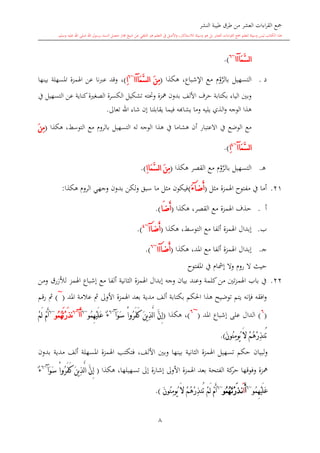 جمع القراءات العشر من طرق طيبة النشر
السَّمَآاْ).
د . التسهيل بالرَّوْم مع الإشباع، هكذا (مِنَ السَّمَآاْ)، وقد عبرنا عن الهمزة المسهلة بينها
وبين الياء بكتابة حرف الألف بدون همزة وتحته تشكيل الكسرة الصغيرة كناية عن التسهيل في
هذا الوجه والذي يليه وما يشابهه فيما يقابلنا إن شاء الله تعالى.
مع الوضع في الاعتبار أن هشاما في هذا الوجه له التسهيل بالروم مع التوسط، هكذا (مِنَ
السَّمَآاْ).
هـ. التسهيل بالرَّوْم مع القصر هكذا (مِنَ السَّمَاْ).
٢١. أما في مفتوح الهمزة مثل (أَضَآءَ) فيكون مثل ما سبق ولكن بدون وجهي الروم هكذا:
أ . حذف الهمزة مع القصر، هكذا (أَضَا).
ب. إبدال الهمزة ألفا مع التوسط، هكذا (أَضَاآ٤).
جـ. إبدال الهمزة ألفا مع المد، هكذا (أَضَاآ٦).
حيث لا روم ولا إشمام في المفتوح
٢٢. في باب الهمزتين من كلمة وعند بيان وجه إبدال الهمزة الثانية ألفا مع إشباع الهمز للأزرق ومن
وافقه فإنه يتم توضيح هذا الحكم بكتابة ألف مدية بعد الهمزة الأولى ثم علامة المد (~) ثم رقم
(٦) الدال على إشباع المد (~٦)، هكذا (إِنَّ ٱلَّذِينَ كَفَرُواْ سَوَآءٌ عَلَيْهِمُو ءَآنذَرْتَهُمُو أَمْ لَمْ
تُنذِرْهُمْ لَا يُومِنُونَ).
ولبيان حكم تسهيل الهمزة الثانية بينها وبين الألف، فتكتب الهمزة المسهلة ألف مدية بدون
همزة وفوقها حركة الفتحة بعد الهمزة الأولى إشارة إلى تسهيلها، هكذا ( إِنَّ ٱلَّذِينَ كَفَرُواْ سَوَآءٌ
عَلَيْهِمُو ءَاَنذَرْتَهُمُو أَمْ لَمْ تُنذِرْهُمْ لَا يُومِنُونَ ).
٨